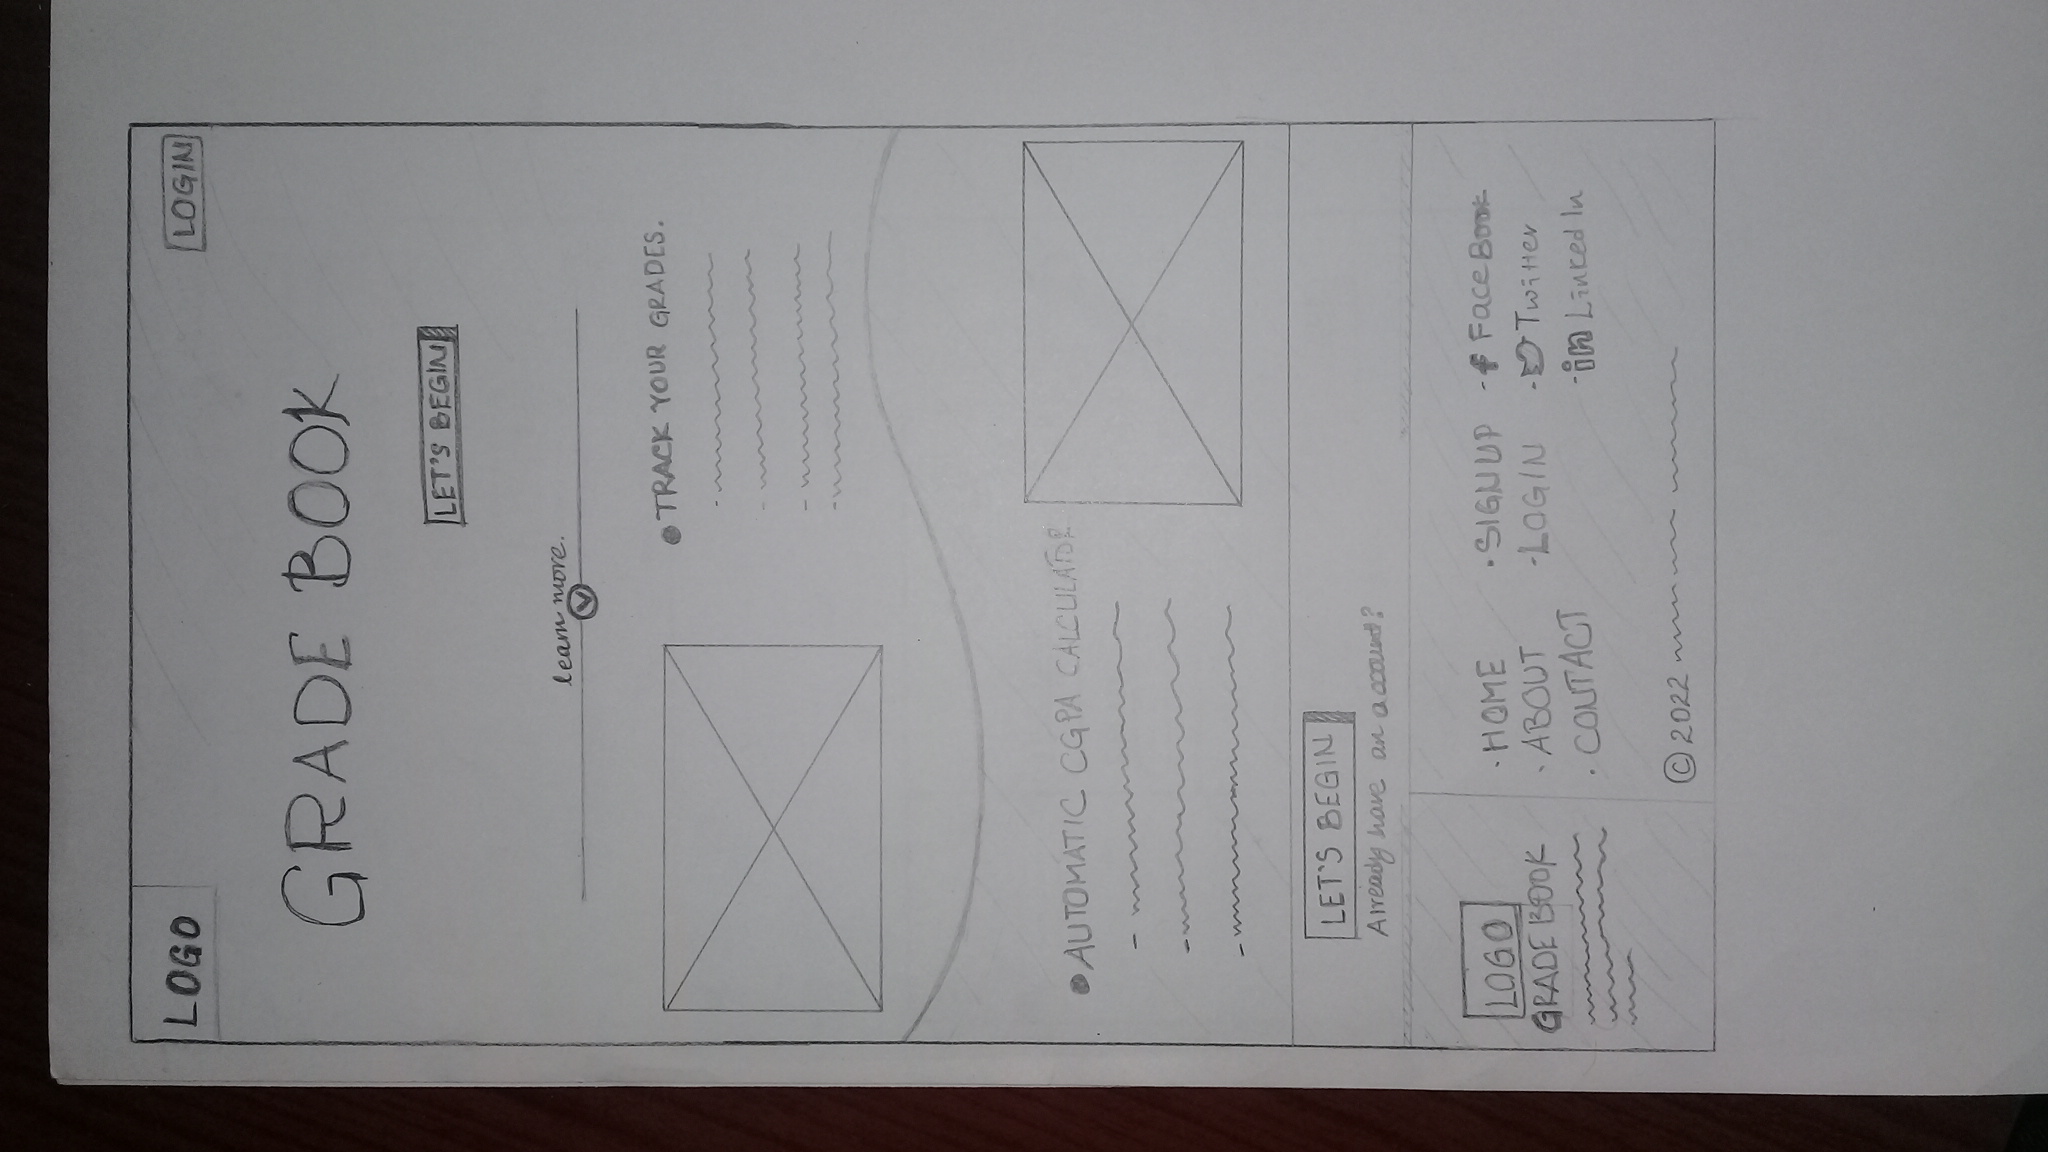 LOGO
LOGIN
GRADE BOOK
LET'S BEGIN
learn more.
TRACK YOUR GRADES.
AUTOMATIC CGPA CALCULATOR
LET'S BEGIN
Already have an account?
LOGO
GRADE BOOK
HOME
ABOUT
CONTACT
SIGNUP
LOGIN
f FaceBook
Twitter
in Linked In
© 2022